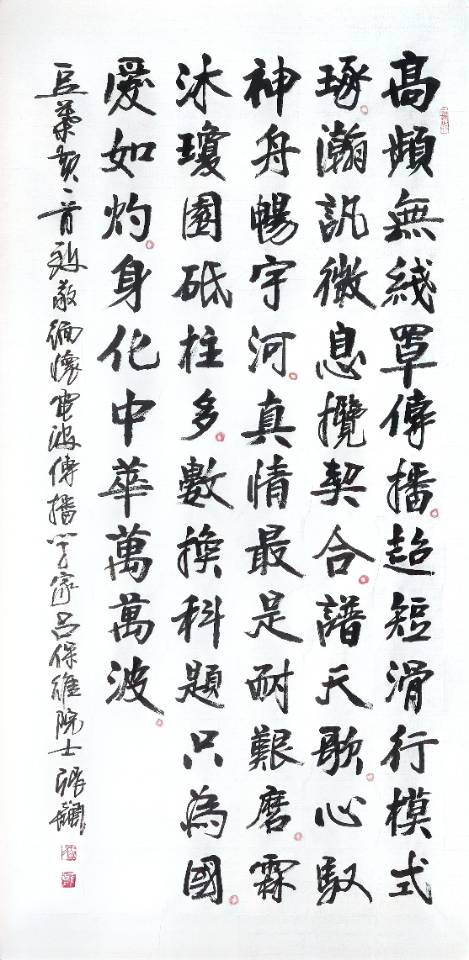 高頻無綫罩傳播。超短滑行模式
琢。瀚訊微息攬契合。譜天歌。心馭
神舟暢宇河。真情最是耐艱磨。霖
沐瓊園砥柱多。數換科題只為國。
愛如灼。身化中華萬萬波。
豆葉黃二首致敬緬懷電波傳播學家呂保維院士張